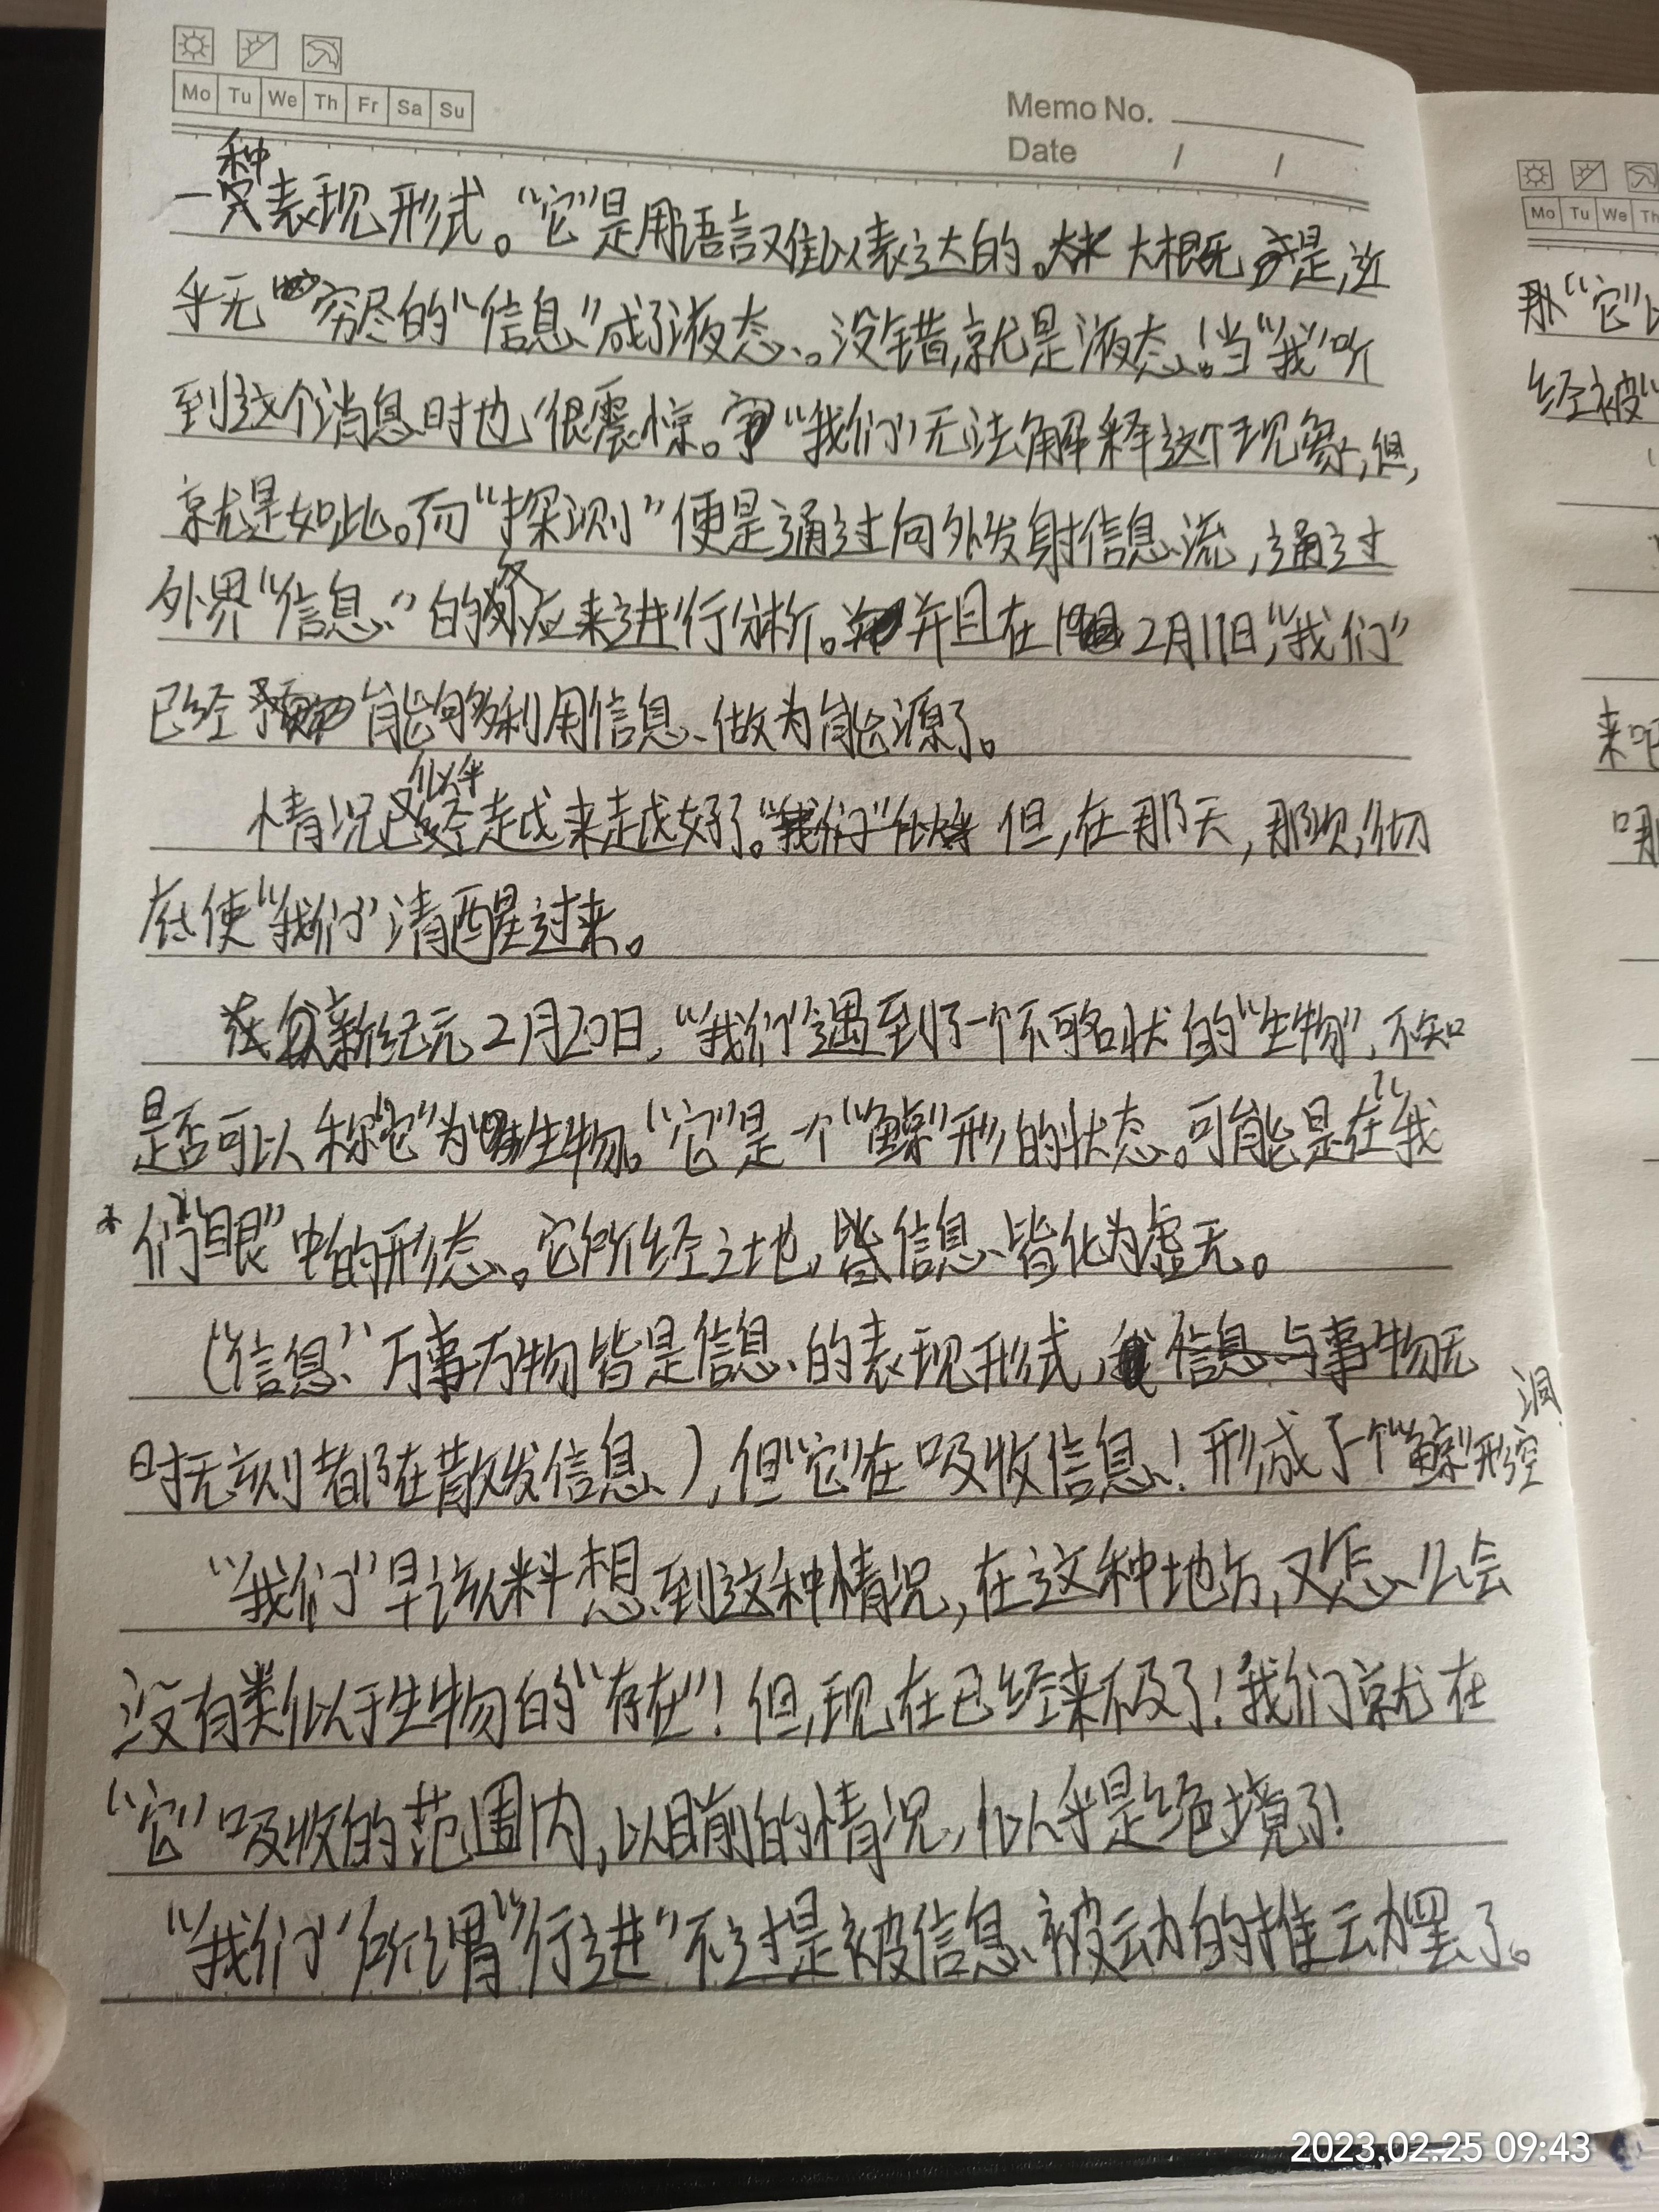 Mo Tu We Th Fr Sa Su
Memo No.
Date / /
一种表现形式。“它”是用语言难以表达的。大概是,近
乎无穷尽的“信息”成了液态。没错,就是液态!当“我”听
到这个消息时也很震惊。“我们”无法解释这个现象,但,
就是如此。而“探测”便是通过向外发射信息流,通过
外界“信息”的反应来进行分析。并且在2月11日,“我们”
已经能够利用信息做为能源了。
情况似乎越来越好了。但,在那天,那次,彻
底使“我们”清醒过来。
在新纪元2月20日,“我们”遇到了一个不可名状的“生物”,不知
是否可以称“它”为生物。“它”是一个“鲸”形的状态。可能是在“我
们”“眼”中的形态。它所经之地,信息皆化为虚无。
(“信息”万事万物皆是信息的表现形式,信息与事物无
时无刻都在散发信息),但“它”在吸收信息!形成了一个“鲸”形空洞
“我们”早该料想到这种情况,在这种地方,又怎么会
没有类似于生物的“存在”!但,现在已经来不及了!我们就在
“它”吸收的范围内,以目前的情况,似乎是绝境了!
“我们”所谓“行进”不过是被信息被动的推动罢了。
Mo Tu We Th
那“它”
经被“
来吧
2023.02.25 09:43